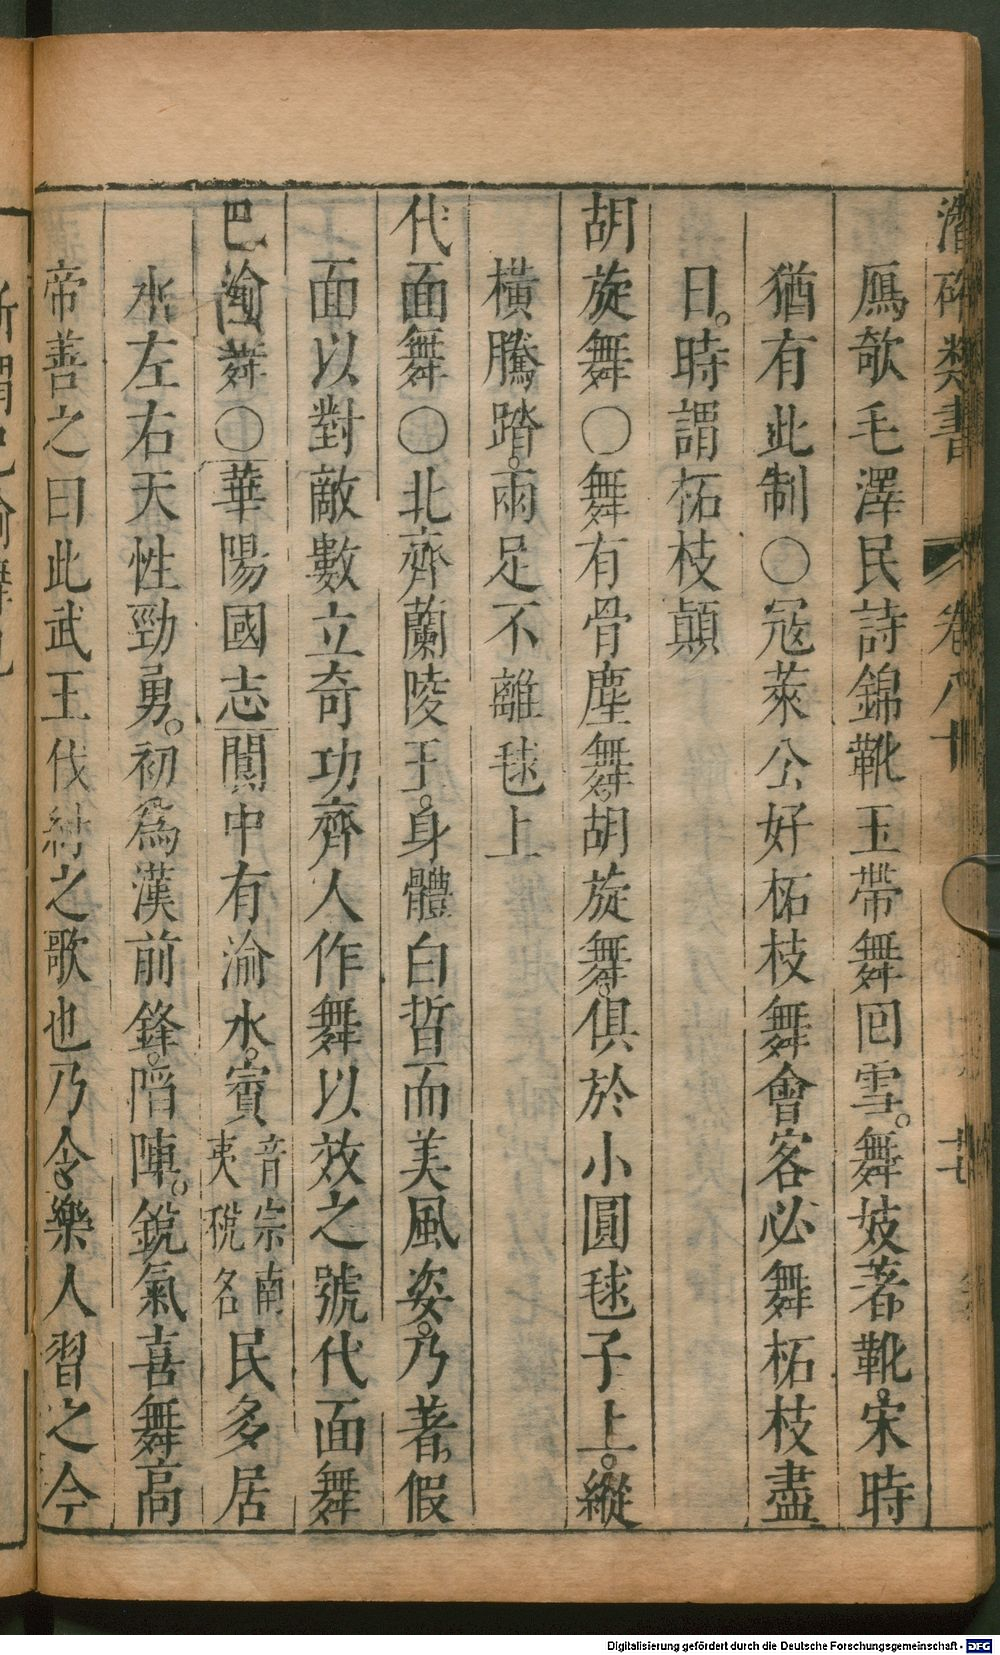 潛確類書 卷八十 七
鴈欹毛澤民詩錦靴玉帶舞回雪。舞妓著靴。宋時
猶有此制〇冦萊公好柘枝舞會客必舞柘枝盡
日。時謂柘枝顛
胡旋舞〇舞有骨塵舞胡旋舞。俱於小圓毬子上。縱
橫騰踏。兩足不離毬上
代面舞〇北齊蘭陵王。身體白晳而美風姿。乃著假
面以對敵數立奇功齊人作舞以效之號代面舞
巴渝舞〇華陽國志閬中有渝水。賨音宗南夷稅名民多居
水左右天性勁勇。初爲漢前鋒。陷陣。銳氣喜舞高
帝善之曰此武王伐紂之歌也乃令樂人習之今
Digitalisierung gefördert durch die Deutsche Forschungsgemeinschaft - DFG